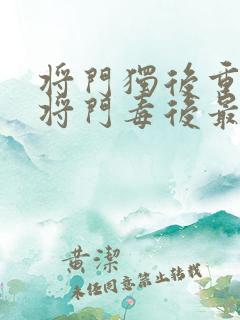 将門獨後重
将門毒後最
黄潔
未经同意禁止转载